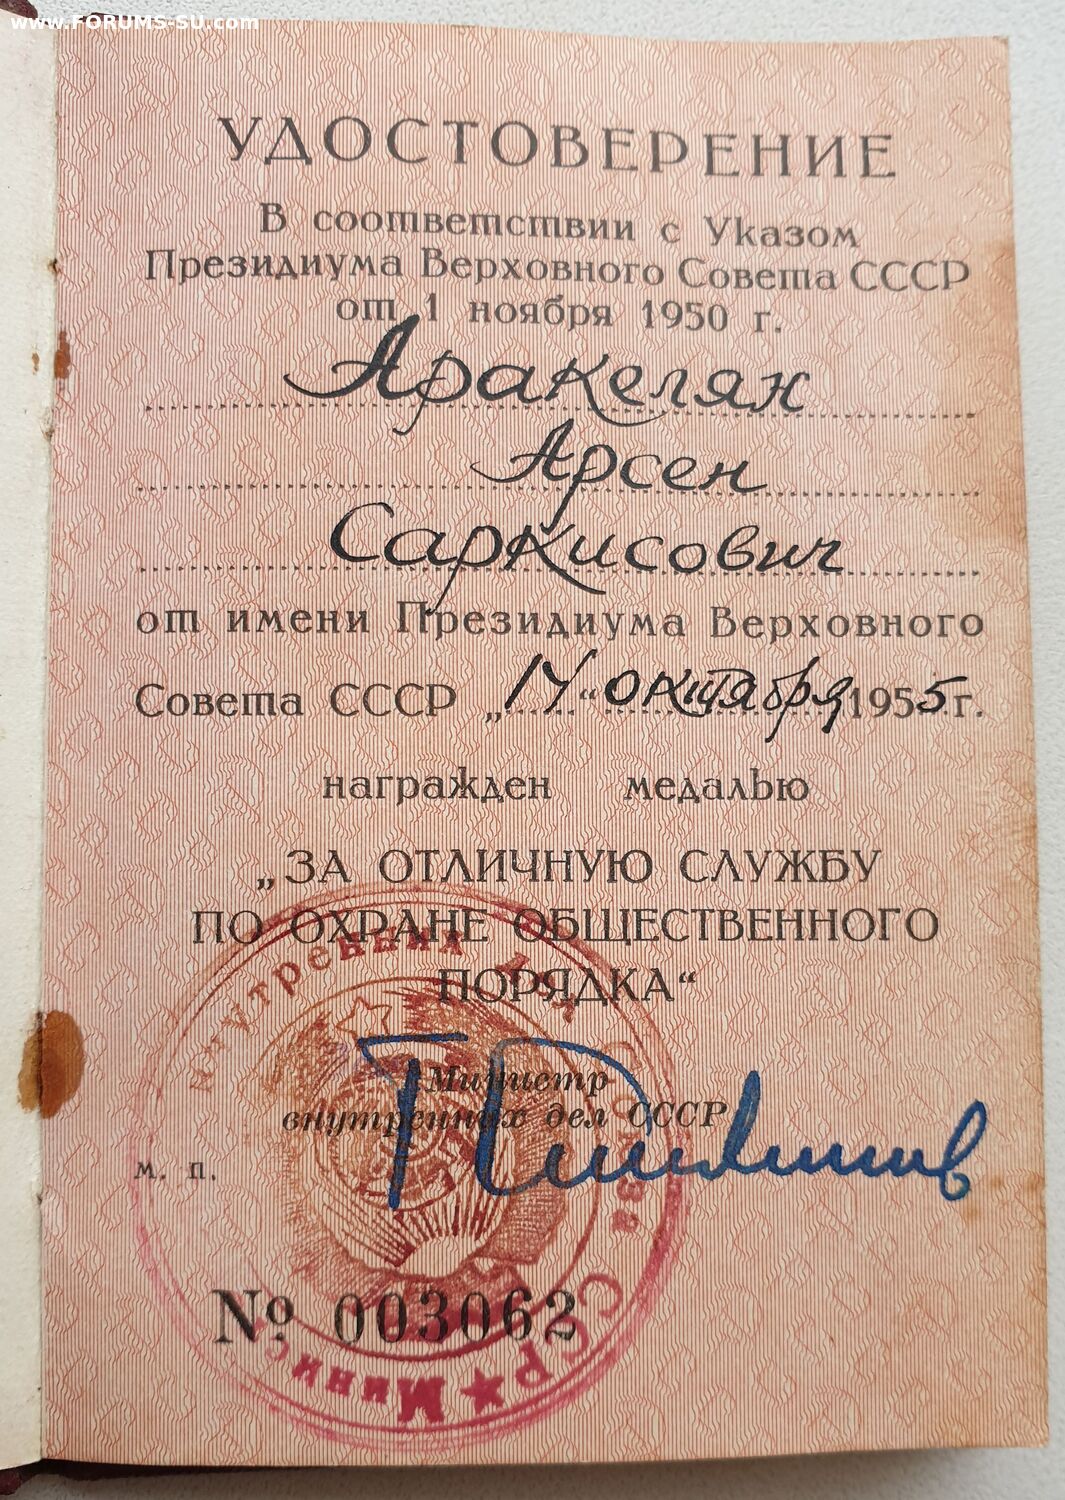 www.FORUMS-SU.com
УДОСТОВЕРЕНИЕ
В соответствии с Указом
Президиума Верховного Совета СССР
от 1 ноября 1950 г.
Аракелян
Арсен
Саркисович
от имени Президиума Верховного
Совета СССР „14“ октября 1955 г.
награжден медалью
„ЗА ОТЛИЧНУЮ СЛУЖБУ
ПО ОХРАНЕ ОБЩЕСТВЕННОГО
ПОРЯДКА“
Министр
внутренних дел СССР
м. п.
№ 003062